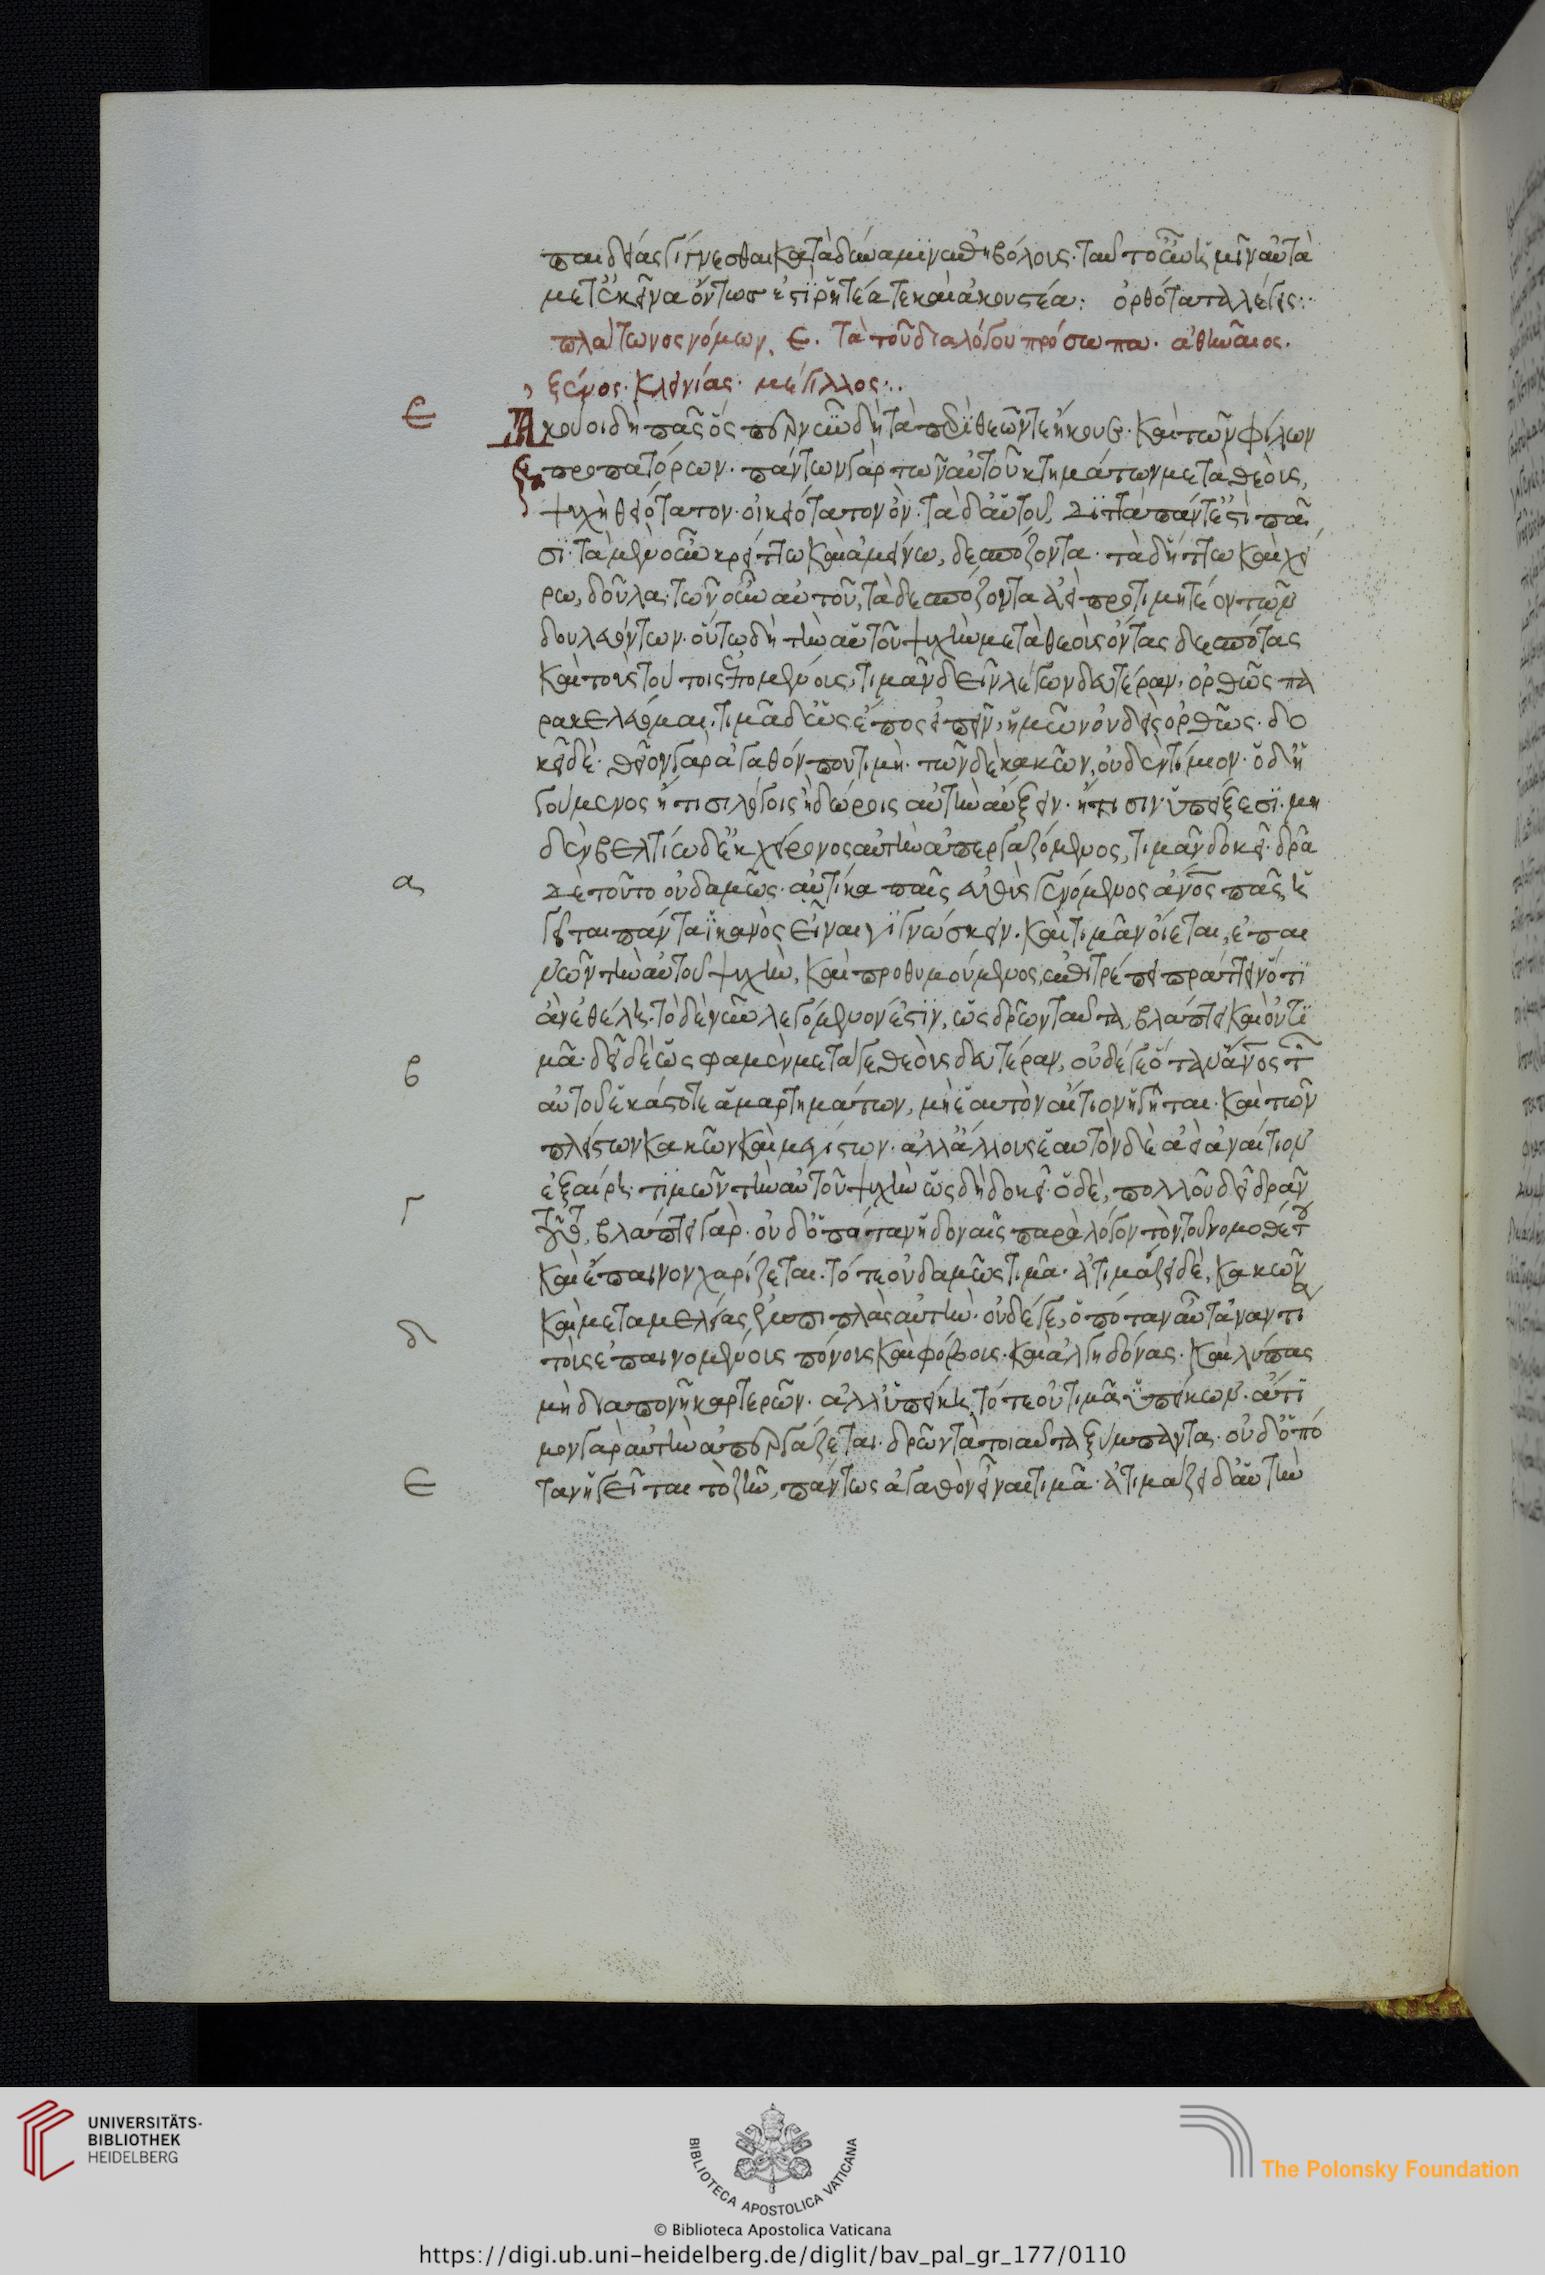 παιδείας γίγνεσθαι κατὰ δύναμιν ἐπηβόλους. ταῦτ' οὖν ἡμῖν αὐτὰ
μετ' ἐκεῖνα ὄντως ἐστὶ ῥητέα τε καὶ ἀκουστέα: ὀρθότατα λέγεις:·
πλάτωνος νόμων, ε. τὰ τοῦ διαλόγου πρόσωπα. ἀθηναῖος.
ξένος. κλεινίας. μέγιλλος:·
ε
Ἀκούοι δὴ πᾶς ὅσπερ νῦν δὴ τὰ περὶ θεῶν τε ἤκουε. καὶ τῶν φίλων
προπατόρων. πάντων γὰρ τῶν αὐτοῦ κτημάτων μετὰ θεοὺς,
ψυχὴ θειότατον. οἰκειότατον ὄν. τὰ δ' αὑτοῦ, διττὰ πάντ' ἐστὶ πᾶ
σι. τὰ μὲν οὖν κρείττω καὶ ἀμείνω, δεσπόζοντα. τὰ δ' ἥττω καὶ χεί
ρω, δοῦλα. τῶν οὖν αὐτοῦ, τὰ δεσπόζοντα ἀεὶ προτιμητέον τῶν
δουλευόντων. οὕτω δὴ τὴν αὑτοῦ ψυχὴν μετὰ θεοὺς ὄντας δεσπότας
καὶ τοὺς τούτοις ἑπομένοις, τιμᾶν δεῖν λέγων δευτέραν, ὀρθῶς πα
ρακελεύομαι. τιμᾷ δ' ὡς ἔπος εἰπεῖν, ἡμῶν οὐδεὶς ὀρθῶς. δο
κεῖ δέ. θεῖον γὰρ ἀγαθόν που τιμή. τῶν δὲ κακῶν, οὐδὲν τίμιον. ὁ δ' ἡ
γούμενος ἤ τισι λόγοις ἢ δώροις αὐτὴν αὔξειν. ἤ τισιν ὑπείξεσι. μη
δὲν βελτίω δ' ἐκ χείρονος αὐτὴν ἀπεργαζόμενος, τιμᾶν δοκεῖ. δρᾷ
α
δὲ τοῦτο οὐδαμῶς. αὐτίκα παῖς εὐθὺς γενόμενος ἄνος πᾶς, ἡ
γεῖται πάντα ἱκανὸς εἶναι γιγνώσκειν. καὶ τιμᾶν οἴεται, ἐπαι
νῶν τὴν αὑτοῦ ψυχὴν, καὶ προθυμούμενος, ἐπιτρέπει πράττειν ὅτι
ἂν ἐθέλῃ. τὸ δὲ νῦν λεγόμενον ἐστὶν, ὡς δρῶν ταῦτα, βλάπτει καὶ οὐ τι
β
μᾷ. δεῖ δὲ ὡς φαμὲν μετά γε θεοὺς δευτέραν, οὐδέ γε ὅταν ἄνος τῶν
αὐτοῦ ἑκάστοτε ἁμαρτημάτων, μὴ ἑαυτὸν αἴτιον ἡγῆται. καὶ τῶν
πλείστων κακῶν καὶ μεγίστων. ἀλλ' ἄλλους ἑαυτὸν δὲ ἀεὶ ἀναίτιον
γ
ἐξαίρῃ. τιμῶν τὴν αὑτοῦ ψυχὴν ὡς δὴ δοκεῖ. ὁ δὲ, πολλοῦ δεῖ δρᾶν
τοῦτο, βλάπτει γάρ. οὐδ' ὁπόταν ἡδοναῖς παρὰ λόγον τὸν τοῦ νομοθέτου
καὶ ἔπαινον χαρίζεται. τότε οὐδαμῶς τιμᾷ. ἀτιμάζει δὲ, κακῶν
δ
καὶ μεταμελείας ἐμπιπλὰς αὐτήν. οὐδέ γε, ὁπόταν αὖ τἀναντία
τοῖς ἐπαινομένοις πόνοις καὶ φόβοις. καὶ ἀλγηδόνας. καὶ λύπας
μὴ διαπονῇ καρτερῶν. ἀλλ' ὑπείκῃ, τότε οὐ τιμᾷ ὑπείκων. ἄτι
μον γὰρ αὐτὴν ἀπεργάζεται. δρῶν τὰ τοιαῦτα ξύμπαντα. οὐδ' ὁπό
ε
ταν ἡγεῖται τὸ ζῆν, πάντως ἀγαθὸν εἶναι τιμᾷ. ἀτιμάζει δ' αὐτὴν
UNIVERSITÄTS-
BIBLIOTHEK
HEIDELBERG
BIBLIOTECA APOSTOLICA VATICANA
The Polonsky Foundation
© Biblioteca Apostolica Vaticana
https://digi.ub.uni-heidelberg.de/diglit/bav_pal_gr_177/0110